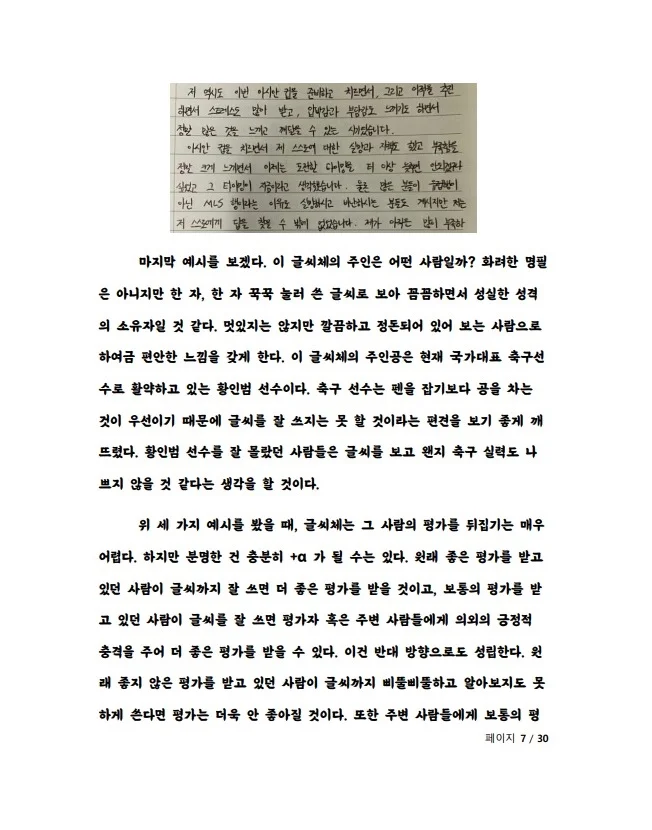 저 역시도 이번 아시안 컵을 준비하고 치르면서, 그리고 이적을 추진
하면서 스트레스도 많이 받고, 압박감과 부담감도 느끼기도 하면서
정말 많은 것을 느끼고 깨달을 수 있는 시기였습니다.
아시안 컵을 치르면서 제 스스로에 대한 실망과 자책도 했고 부족함을
정말 크게 느끼면서 이제는 도전할 타이밍을 더 이상 놓치면 안되겠다
싶었고 그 타이밍이 지금이라고 생각했습니다. 물론 많은 분들이 유럽행이
아닌 MLS 행이라는 이유로 실망하시고 비난하시는 분들도 계시지만 저는
저 스스로에게 답을 찾을 수 밖에 없었습니다. 제가 아직은 많이 부족하
마지막 예시를 보겠다. 이 글씨체의 주인은 어떤 사람일까? 화려한 명필
은 아니지만 한 자, 한 자 꾹꾹 눌러 쓴 글씨로 보아 꼼꼼하면서 성실한 성격
의 소유자일 것 같다. 멋있지는 않지만 깔끔하고 정돈되어 있어 보는 사람으로
하여금 편안한 느낌을 갖게 한다. 이 글씨체의 주인공은 현재 국가대표 축구선
수로 활약하고 있는 황인범 선수이다. 축구 선수는 펜을 잡기보다 공을 차는
것이 우선이기 때문에 글씨를 잘 쓰지는 못 할 것이라는 편견을 보기 좋게 깨
뜨렸다. 황인범 선수를 잘 몰랐던 사람들은 글씨를 보고 왠지 축구 실력도 나
쁘지 않을 것 같다는 생각을 할 것이다.
위 세 가지 예시를 봤을 때, 글씨체는 그 사람의 평가를 뒤집기는 매우
어렵다. 하지만 분명한 건 충분히 +α 가 될 수는 있다. 원래 좋은 평가를 받고
있던 사람이 글씨까지 잘 쓰면 더 좋은 평가를 받을 것이고, 보통의 평가를 받
고 있던 사람이 글씨를 잘 쓰면 평가자 혹은 주변 사람들에게 의외의 긍정적
충격을 주어 더 좋은 평가를 받을 수 있다. 이건 반대 방향으로도 성립한다. 원
래 좋지 않은 평가를 받고 있던 사람이 글씨까지 삐뚤삐뚤하고 알아보지도 못
하게 쓴다면 평가는 더욱 안 좋아질 것이다. 또한 주변 사람들에게 보통의 평
페이지 7 / 30